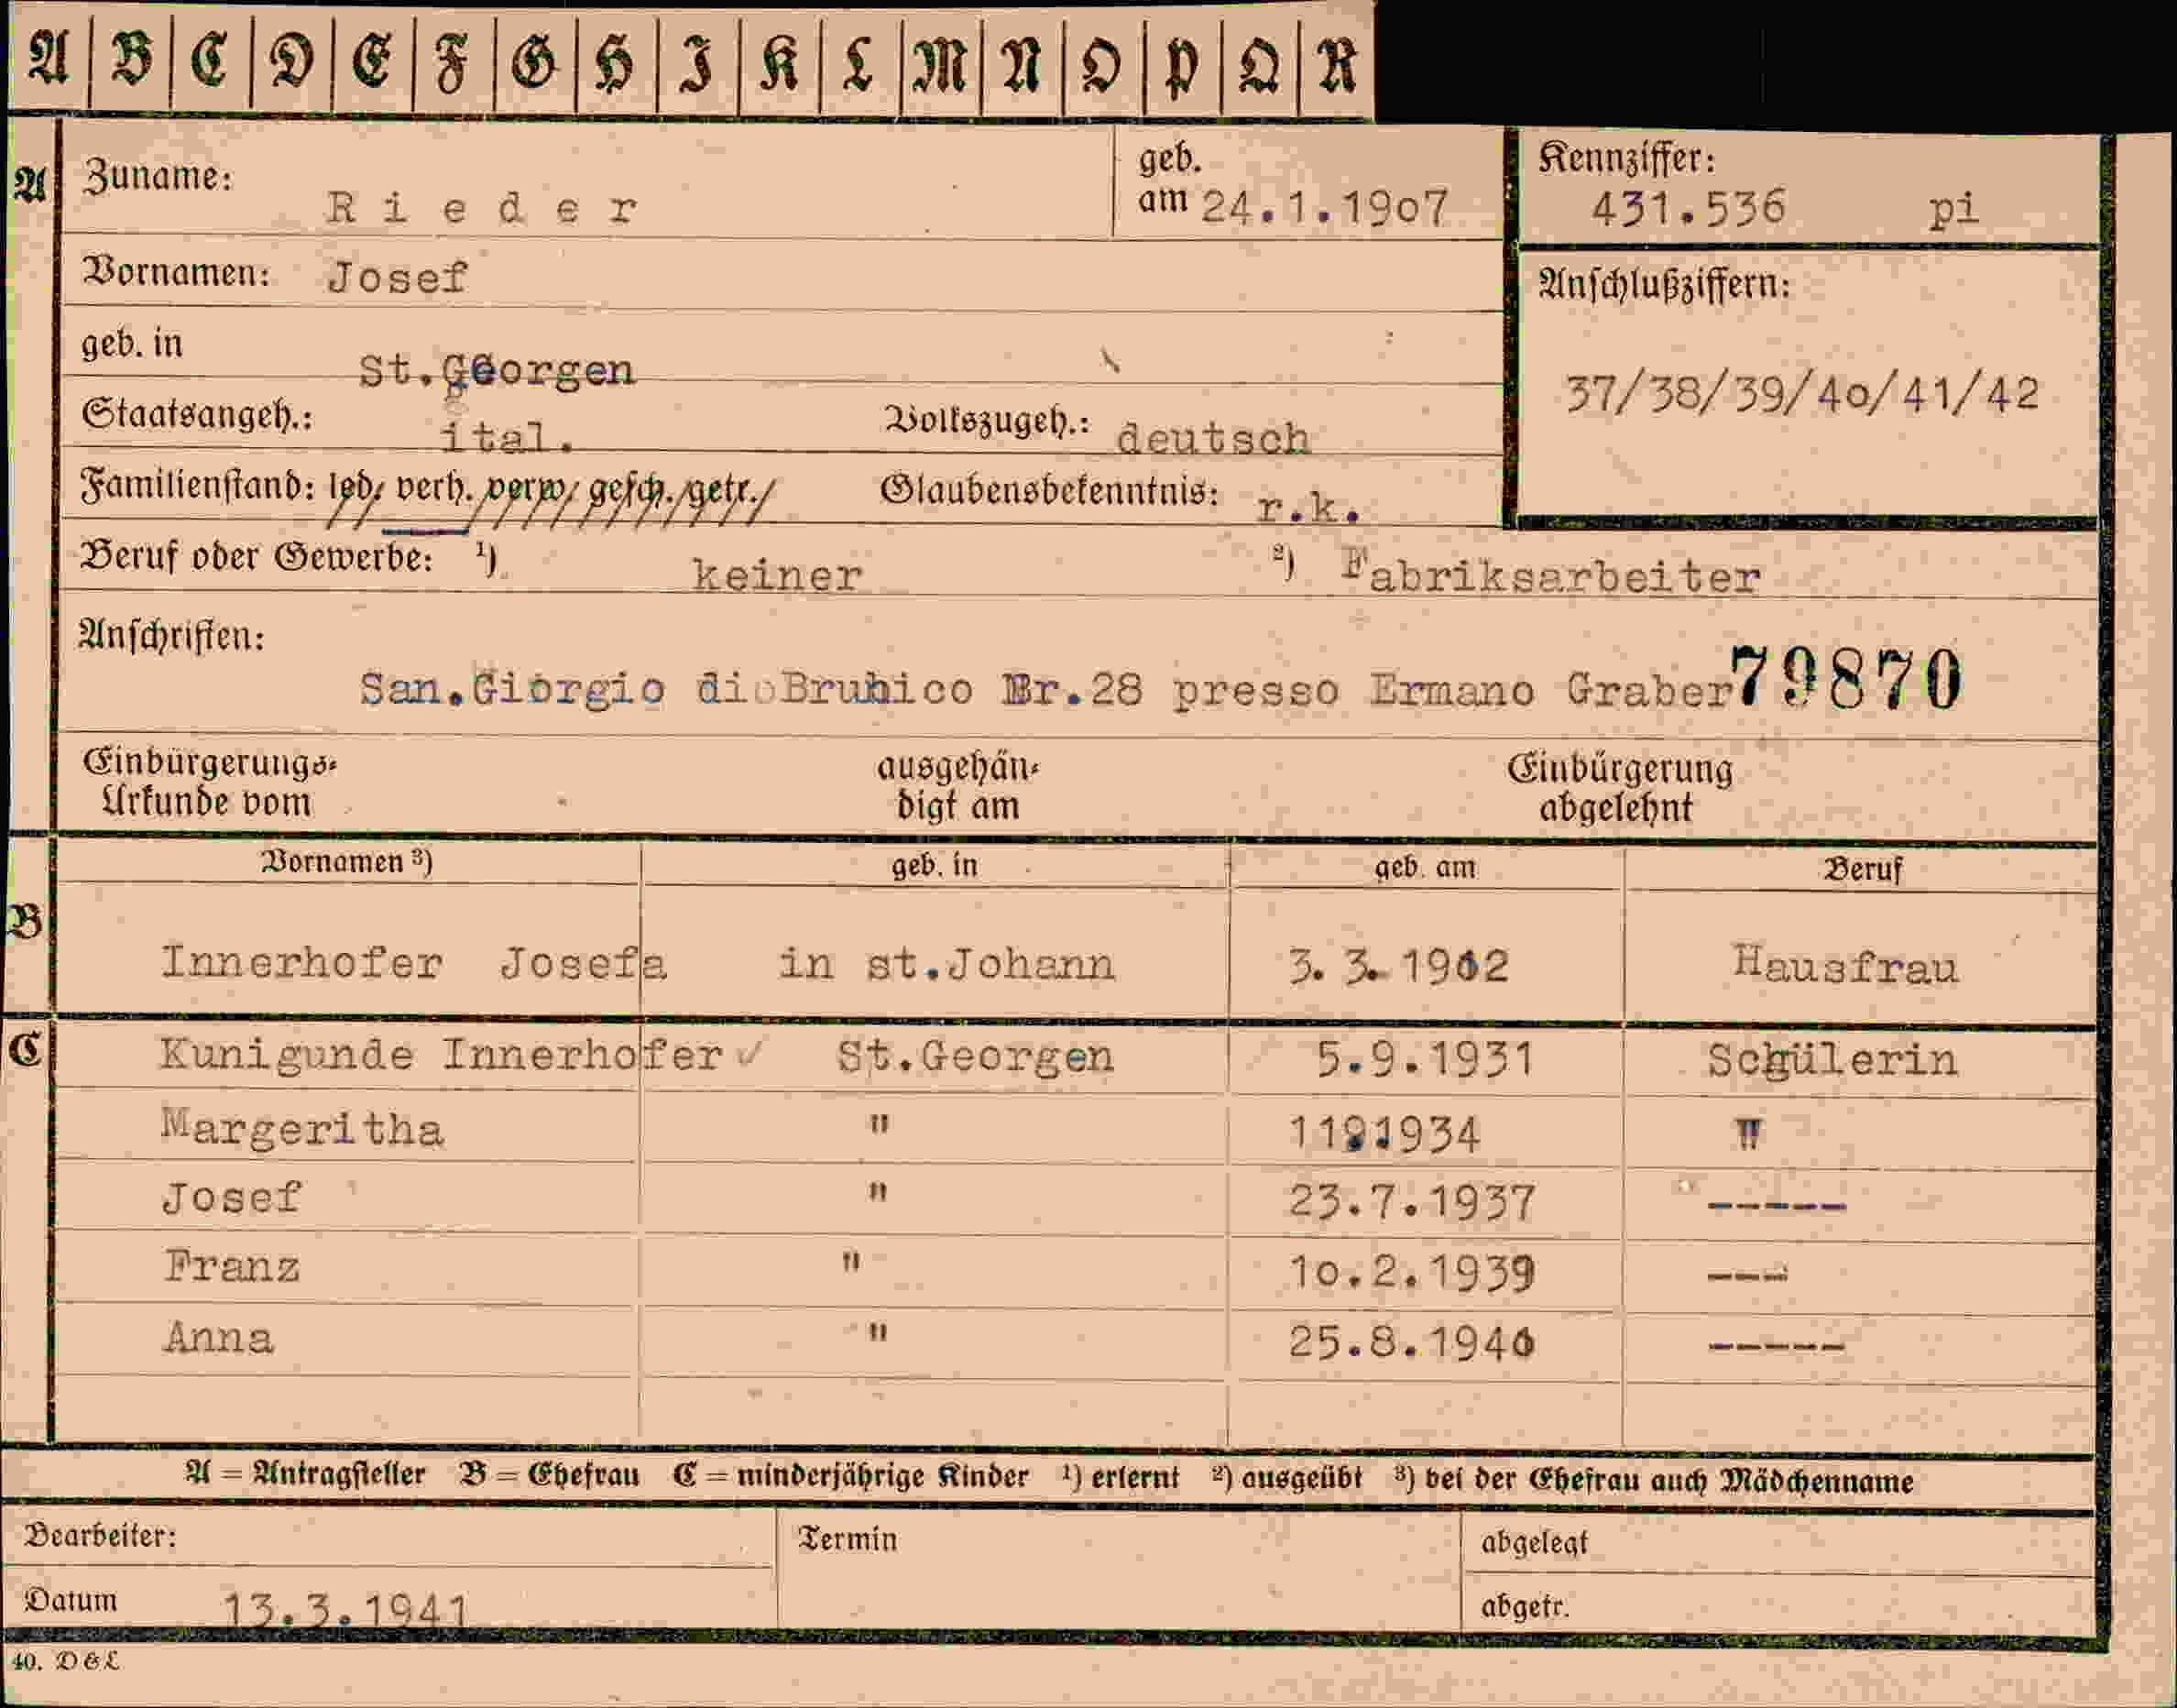 A B C D E F G H I K L M N O P Q R
A Zuname: Rieder geb. am 24.1.1907 Kennziffer: 431.536 pi
Vornamen: Josef Anschlußziffern:
geb. in St.Georgen 37/38/39/40/41/42
Staatsangeh.: ital. Volkszugeh.: deutsch
Familienstand: led. verh. verw. gesch. getr. Glaubensbekenntnis: r.k.
Beruf oder Gewerbe: ¹) keiner ²) Fabriksarbeiter
Anschriften:
San.Giorgio di Brunico Nr.28 presso Ermano Graber 79870
Einbürgerungs- ausgehän- Einbürgerung
Urkunde vom digt am abgelehnt
Vornamen ³) geb. in geb. am Beruf
B Innerhofer Josefa in st.Johann 3.3.1902 Hausfrau
C Kunigunde Innerhofer ✓ St.Georgen 5.9.1931 Schülerin
Margeritha " "
Josef " 23.7.1937 -----
Franz " 10.2.1939 ---
Anna " 25.8.1940 -----
A = Antragsteller B = Ehefrau C = minderjährige Kinder ¹) erlernt ²) ausgeübt ³) bei der Ehefrau auch Mädchenname
Bearbeiter: Termin abgelegt
Datum 13.3.1941 abgetr.
40. D & L